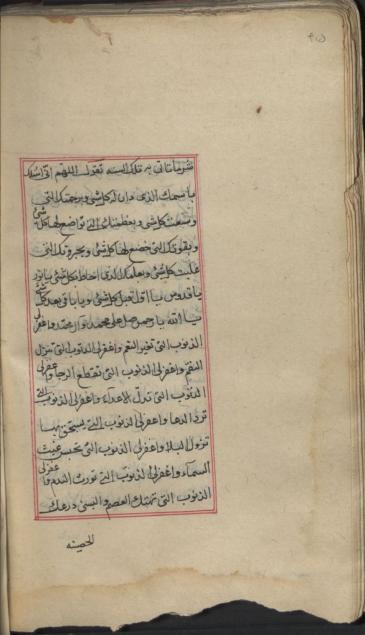 شر ما تاتى به تلك السنه تقول اللهم انى اسئلك
باسمك الذى دان له كلشئ وبرحمتك التى
وسعت كلشئ وبعظمتك التى تواضع لها كل شئ
وبقوتك التى خضع لها كلشئ وبجبروتك التى
غلبت كلشئ وبعلمك الذى احاط بكلشئ يا نور
يا قدوس يا اول قبل كلشئ ويا باقى بعد كل شئ
يا الله يا رحمن صل على محمد وآل محمد واغفر لى
الذنوب التى تغير النعم واغفر لى الذنوب التى تنزل
النقم واغفر لى الذنوب التى تقطع الرجا واغفر لى
الذنوب التى تديل الاعداء واغفر لى الذنوب التى
ترد الدعا واغفر لى الذنوب التى يستحق بها
نزول البلاء واغفر لى الذنوب التى تحبس غيث
السماء واغفر لى الذنوب التى تورث الندم واغفر لى
الذنوب التى تهتك العصم والبسنى درعك
الحصينه